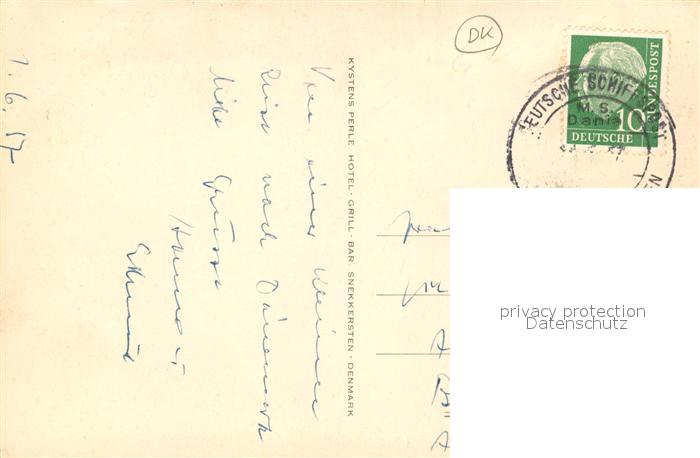 1.6.57
Von einer kleinen
Reise nach Dänemark
liebe Grüsse
KYSTENS PERLE HOTEL · GRILL · BAR SNEKKERSTEN · DENMARK
DK
DEUTSCHE SCHIFFSPOST
M. S.
Dania
10
DEUTSCHE
BUNDESPOST
privacy protection
Datenschutz